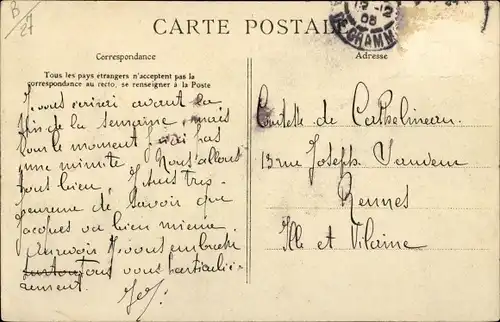 B
27
CARTE POSTALE
15-12
08
DE GRAMM
Correspondance
Adresse
Tous les pays étrangers n'acceptent pas la
correspondance au recto, se renseigner à la Poste
vous écrirai avant la
fin de la semaine, mais
pour le moment j'ai pas
une minute. Nous allons
tous bien, suis très
heureuse de savoir que
Jacques va bien mieux.
Au revoir vous embrasse
tous vous particuliè-
rement.
Comtesse de Cathelineau.
13 rue Joseph Sauveur
Rennes
Ille et Vilaine